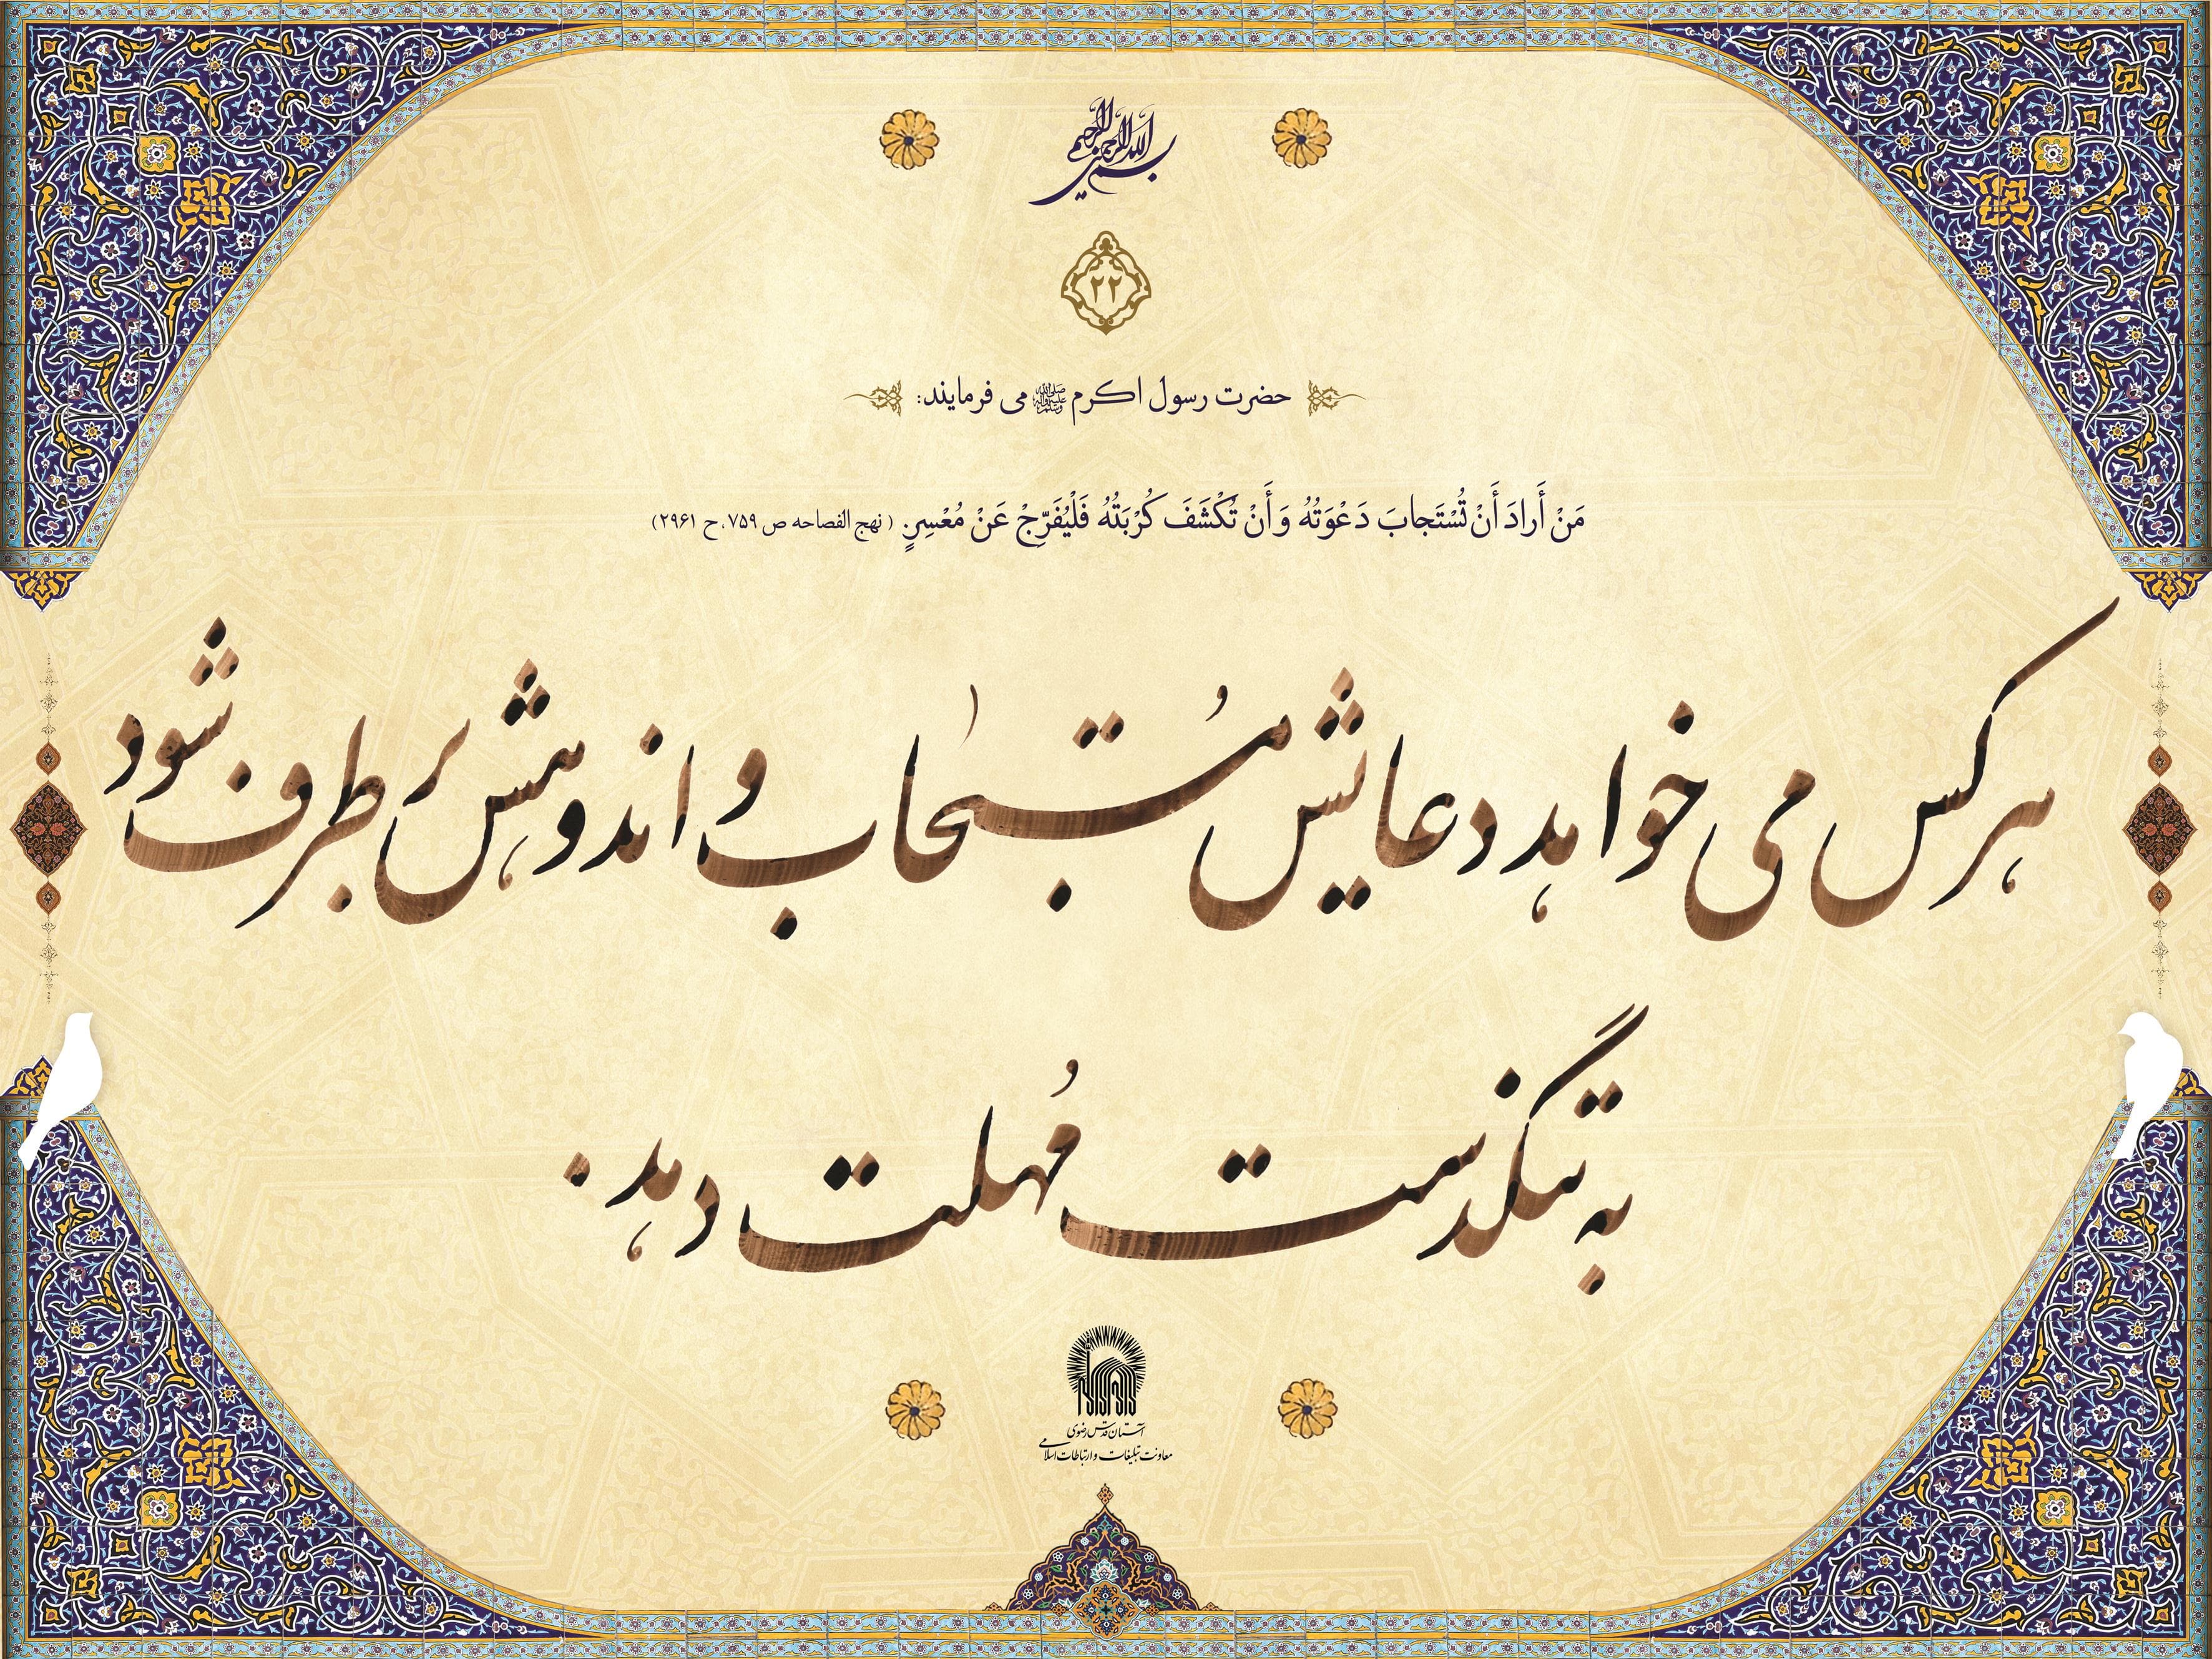 بسم الله الرحمن الرحیم
۲۲
حضرت رسول اکرم ﷺ می فرمایند:
مَنْ أَرادَ أَنْ تُسْتَجابَ دَعْوَتُهُ وَ أَنْ تُكْشَفَ كُرْبَتُهُ فَلْيُفَرِّجْ عَنْ مُعْسِرٍ. (نهج الفصاحه ص ۷۵۹، ح ۲۹۶۱)
هر کس می خواهد دعایش مُستجاب و اندوهش برطرف شود
به تنگدست مُهلت دهد.
آستان قدس رضوی
معاونت تبلیغات و ارتباطات اسلامی